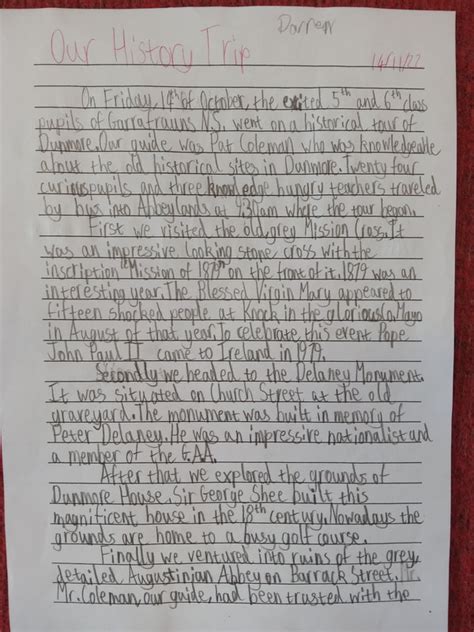 Darren
Our History Trip 14/11/22
On Friday, 14th of October, the exited 5th and 6th class
pupils of Garrafrauns N.S. went on a historical tour of
Dunmore. Our guide was Pat Coleman who was knowledgeable
about the old historical sites in Dunmore. Twenty four
curious pupils and three knowledge hungry teachers traveled
by bus into Abbeylands at 9:30am where the tour began.
First we visited the old, grey Mission Cross. It
was an impressive looking stone cross with the
inscription "Mission of 1879" on the front of it. 1879 was an
interesting year. The Blessed Virgin Mary appeared to
fifteen shocked people at Knock in the glorious Co. Mayo
in August of that year. To celebrate this event Pope
John Paul II came to Ireland in 1979.
Secondly we headed to the Delaney Monument.
It was situated on Church Street at the old
graveyard. The monument was built in memory of
Peter Delaney. He was an impressive nationalist and
a member of the G.A.A.
After that we explored the grounds of
Dunmore House. Sir George Shee built this
magnificent house in the 18th century. Nowadays the
grounds are home to a busy golf course.
Finally we ventured into ruins of the grey,
detailed Augustinian Abbey on Barrack Street.
Mr. Coleman, our guide, had been trusted with the